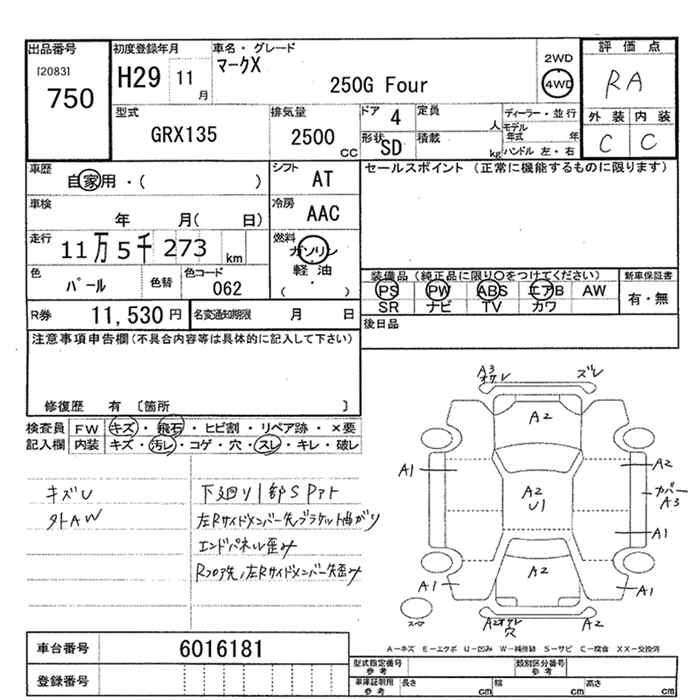 出品番号
[2083]
750
初度登録年月
H29 11月
車名・グレード
マークX
250G Four
2WD
4WD
評価点
RA
外装 内装
C C
型式
GRX135
排気量
2500 CC
ドア 4
定員 人
形状 SD
積載 kg
ディーラー・並行
モデル年式 年
ハンドル 左・右
車歴
自家用・( )
シフト
AT
セールスポイント (正常に機能するものに限ります)
車検
年 月( 日)
冷房
AAC
走行
11万5千273 km
燃料
ガソリン
軽油
・
( )
色
パール
色替
色コード
062
装備品 (純正品に限り〇をつけてください)
PS PW ABS エアB AW
SR ナビ TV カワ
新車保証書
有・無
R券 11,530 円
名変通知期限 月 日
後日品
注意事項申告欄(不具合内容等は具体的に記入して下さい)
修復歴 有 〔箇所 〕
検査員記入欄
FW キズ・飛石・ヒビ割・リペア跡・×要
内装 キズ・汚レ・コゲ・穴・スレ・キレ・破レ
キズU
外AW
下廻り1部Sアト
左Rサイドメンバー先ブラケット曲がり
エンドパネル歪み
Rフロア先、左Rサイドメンバー先歪み
A3
ズレ
A2
A1
A2
A2
U1
カバーA3
A1
A2
A1
A1
穴
A2
車台番号 6016181
登録番号
A-キズ E-エクボ U-凹み W-補修跡 S-サビ C-腐食 XX-交換済
型式指定番号
参考
類別区分番号
参考
車庫証明用
参考
長さ cm
幅 cm
高さ cm